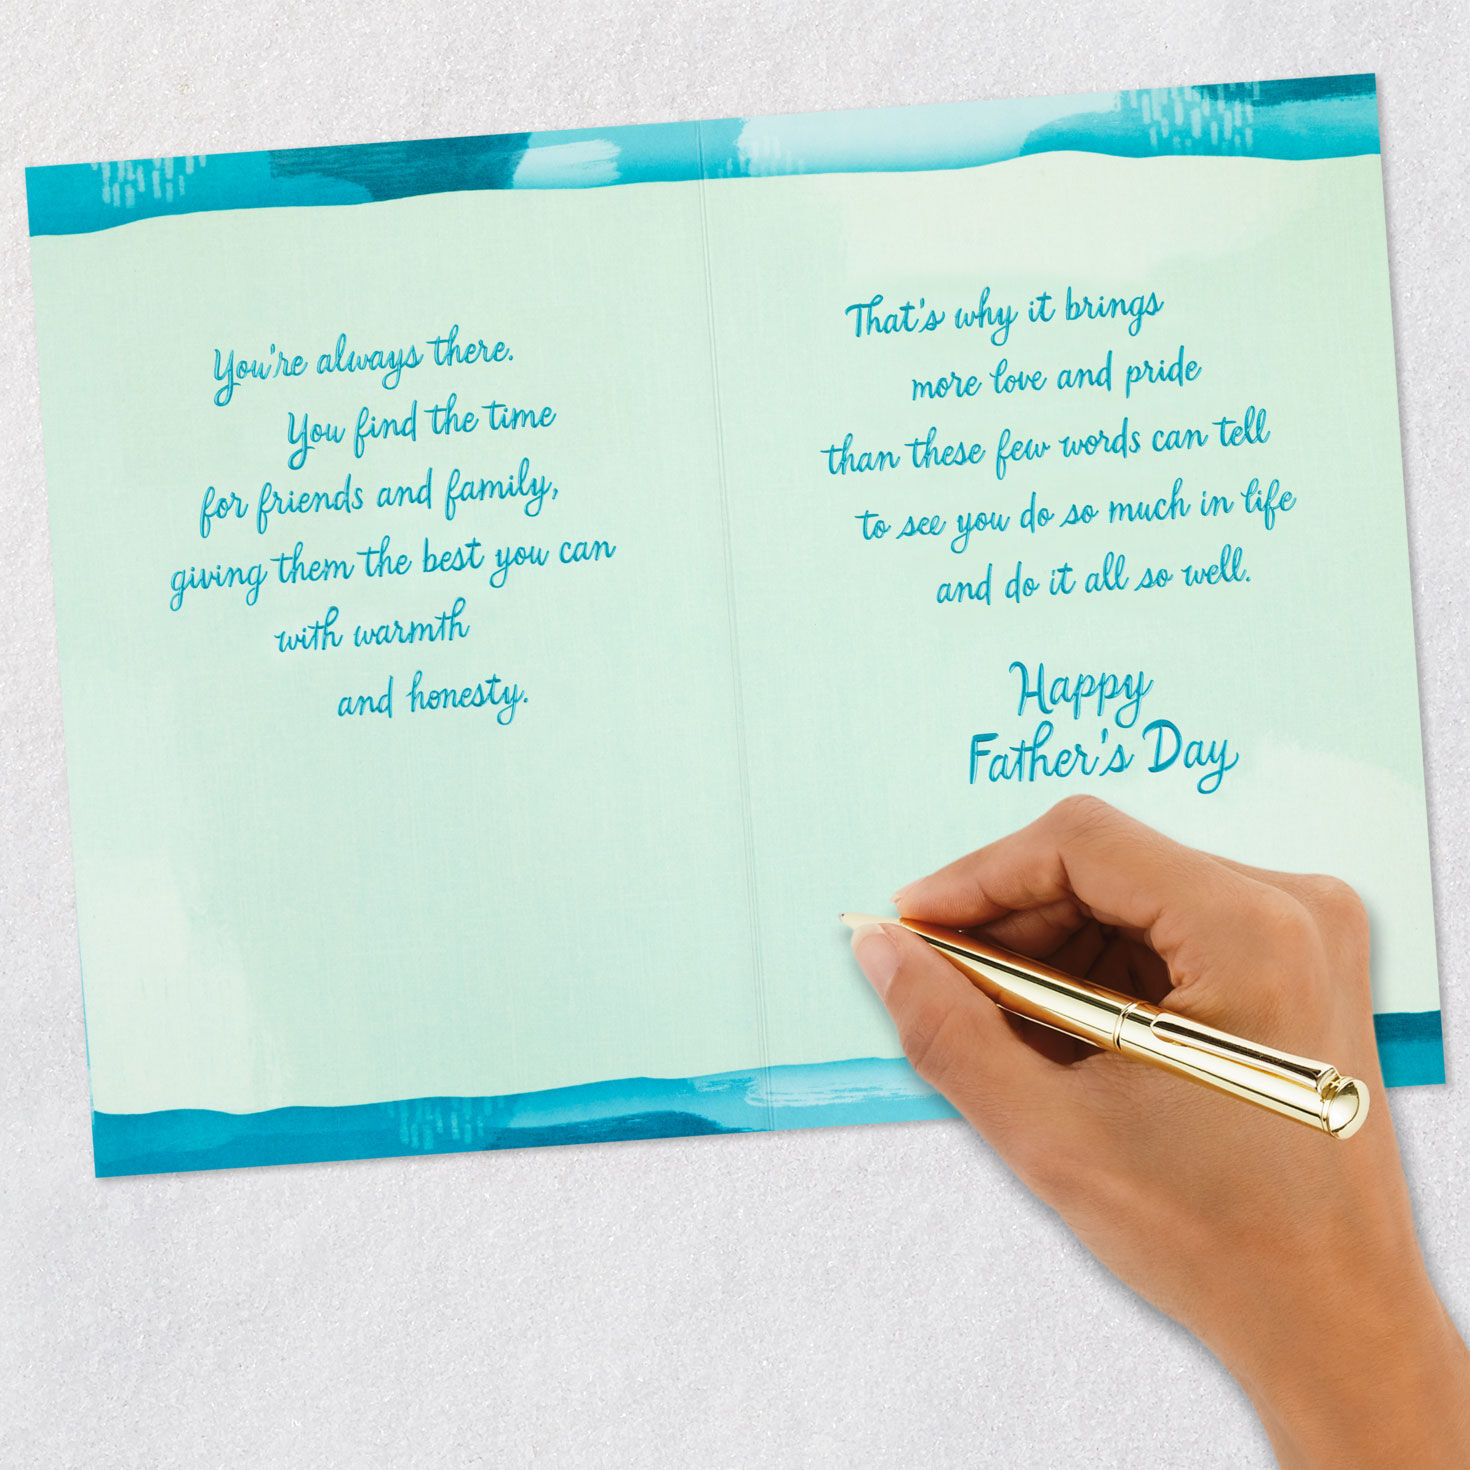 You're always there.
You find the time
for friends and family,
giving them the best you can
with warmth
and honesty.
That's why it brings
more love and pride
than these few words can tell
to see you do so much in life
and do it all so well.
Happy
Father's Day